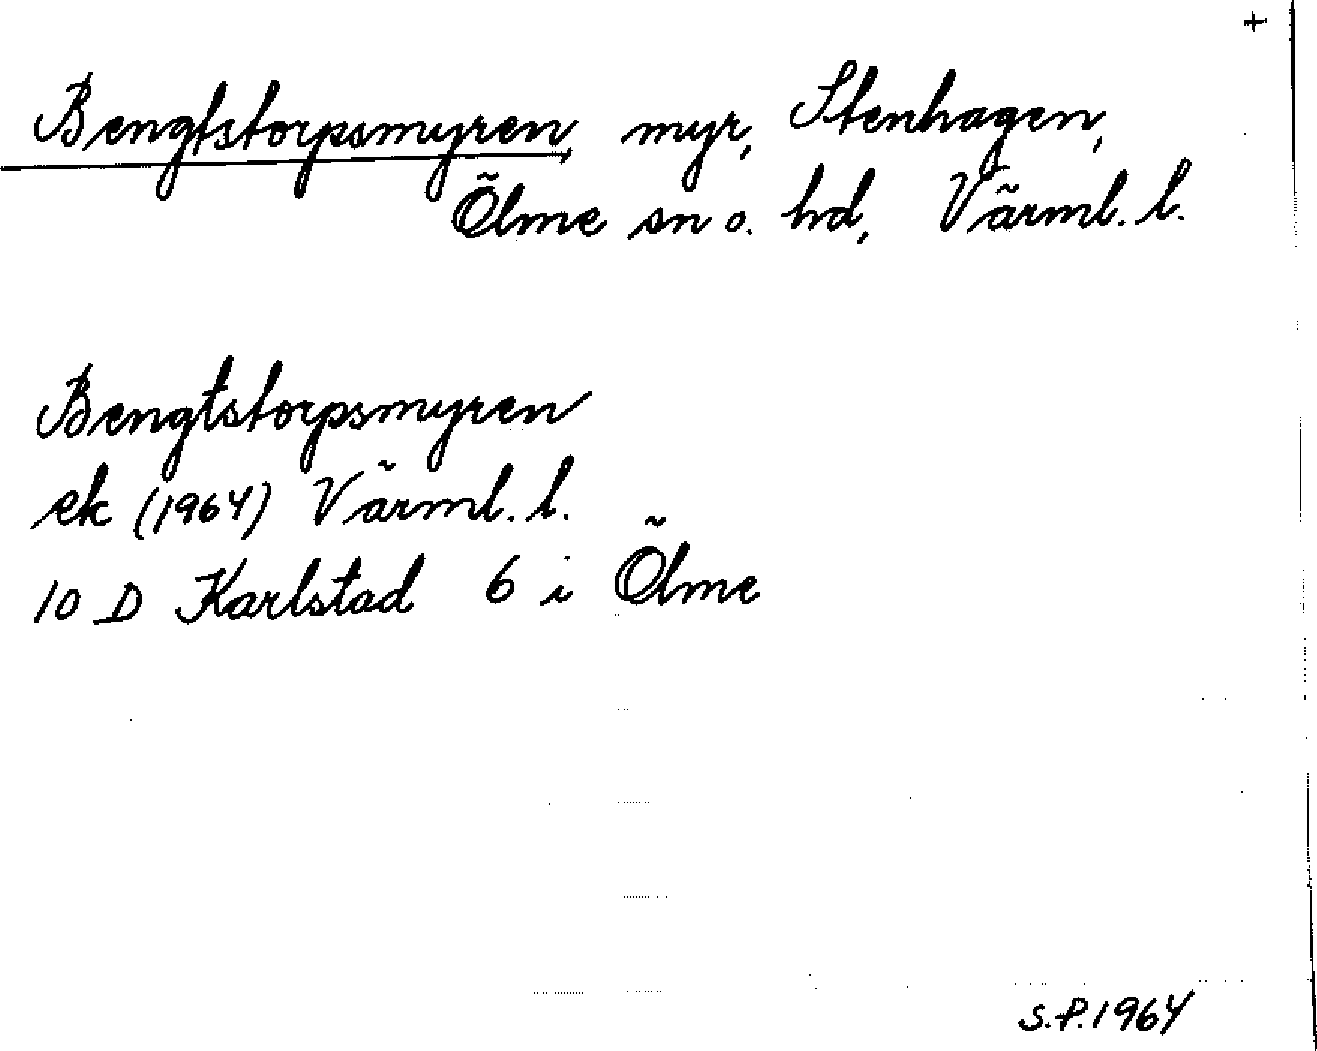 +
Bengtstorpsmyren, myr, Stenhagen,
Ölme sn o. hd, Värml. l.
Bengtstorpsmyren
ek (1964) Värml. l.
10 D Karlstad 6 i Ölme
S.P. 1964